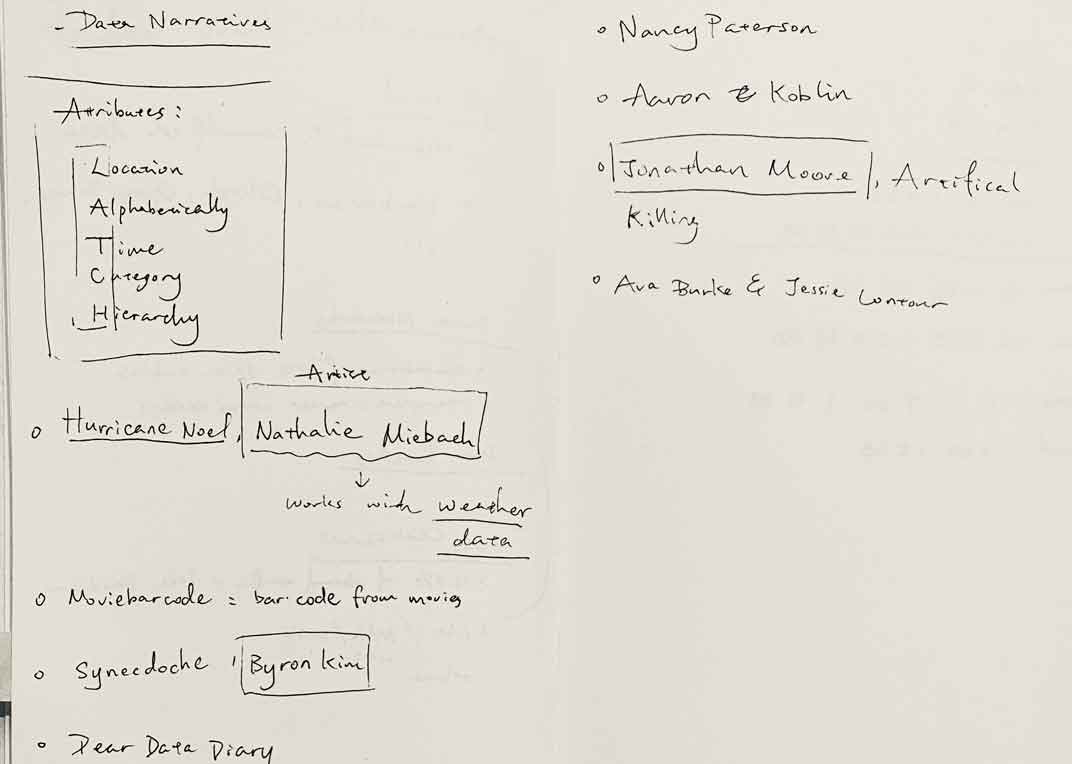 - Data Narratives
Attributes:
Location
Alphabetically
Time
Category
Hierarchy
Artist
Hurricane Noel, Nathalie Miebach
works with weather
data
Moviebarcode = bar code from movies
Synecdoche, Byron Kim
Dear Data Diary
Nancy Paterson
Aaron Koblin
Jonathan Moore, Artifical
Killing
Ava Burke & Jessie Contour